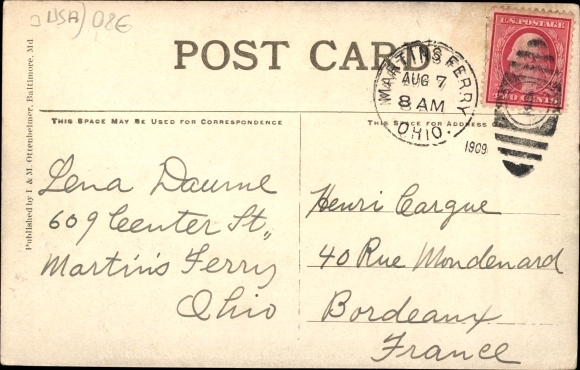 (USA) 08E
POST CARD
U.S. POSTAGE
TWO CENTS
MARTINS FERRY
AUG 7
8 AM
OHIO.
1909
THIS SPACE MAY BE USED FOR CORRESPONDENCE
THIS SPACE FOR ADDRESS
Published by I & M. Ottenheimer, Baltimore, Md
Lena Daume
609 Center St.,
Martins Ferry
Ohio
Henri Cargue
40 Rue Mondenard
Bordeaux
France